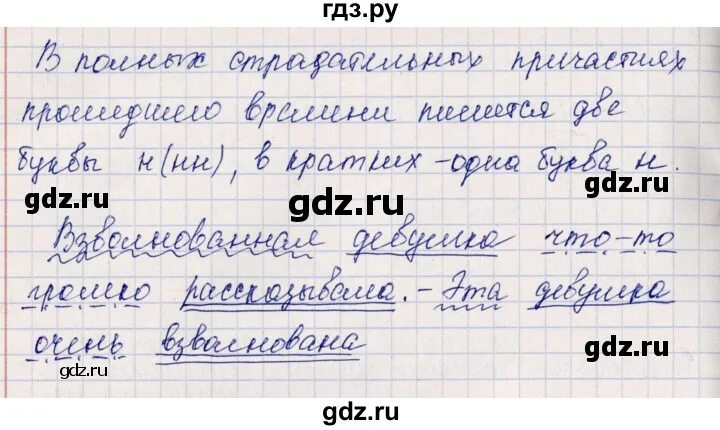 гдз.ру
В полных страдательных причастиях
прошедшего времени пишется две
буквы н(нн), в кратких -одна буква н.
gdz.ru gdz.ru gdz.ru
Взволнованная девушка что-то
громко рассказывала. - Эта девушка
gdz.ru
очень взволнована
gdz.ru
gdz.ru
gdz.ru